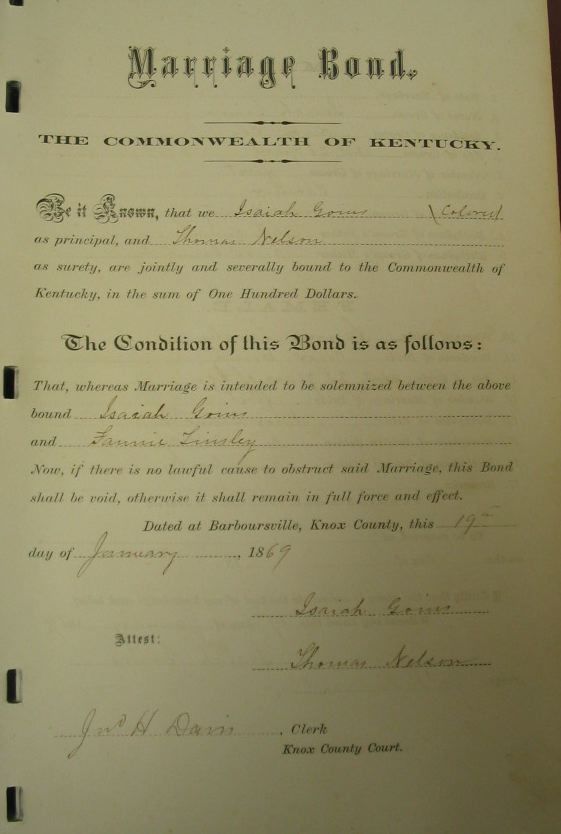 Marriage Bond.
THE COMMONWEALTH OF KENTUCKY.
Be it Known, that we Isaiah Goins (Colored)
as principal, and Thomas Nelson
as surety, are jointly and severally bound to the Commonwealth of
Kentucky, in the sum of One Hundred Dollars.
The Condition of this Bond is as follows:
That, whereas Marriage is intended to be solemnized between the above
bound Isaiah Goins
and Fannie Tinsley
Now, if there is no lawful cause to obstruct said Marriage, this Bond
shall be void, otherwise it shall remain in full force and effect.
Dated at Barboursville, Knox County, this 19th
day of January, 1869
Isaiah Goins
Attest:
Thomas Nelson
Jno H Davis, Clerk
Knox County Court.